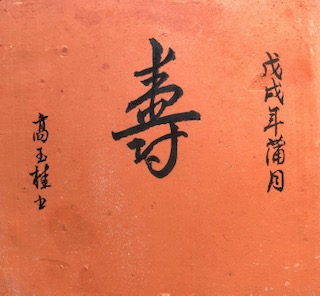 戊戌年蒲月
壽
高玉桂书